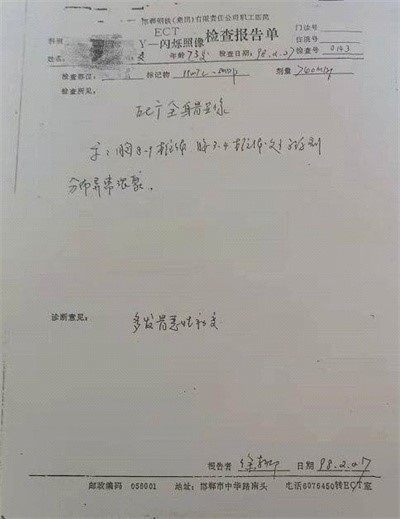 邯郸钢铁(集团)有限责任公司职工医院
ECT
γ-闪烁照像 检查报告单
门诊号
住院号
科别
姓名: 年龄 73岁 检查日期: 98.2.27 检查号 0143
检查部位: 标记物 剂量
检查所见:
ECT全身骨显像
示:胸8.9椎体 腰3.4椎体
分布异常浓聚.
诊断意见: 多发骨恶性转变
报告者 日期 98.2.27
邮政编码 056001 地址: 邯郸市中华路南头 电话6076450转ECT室